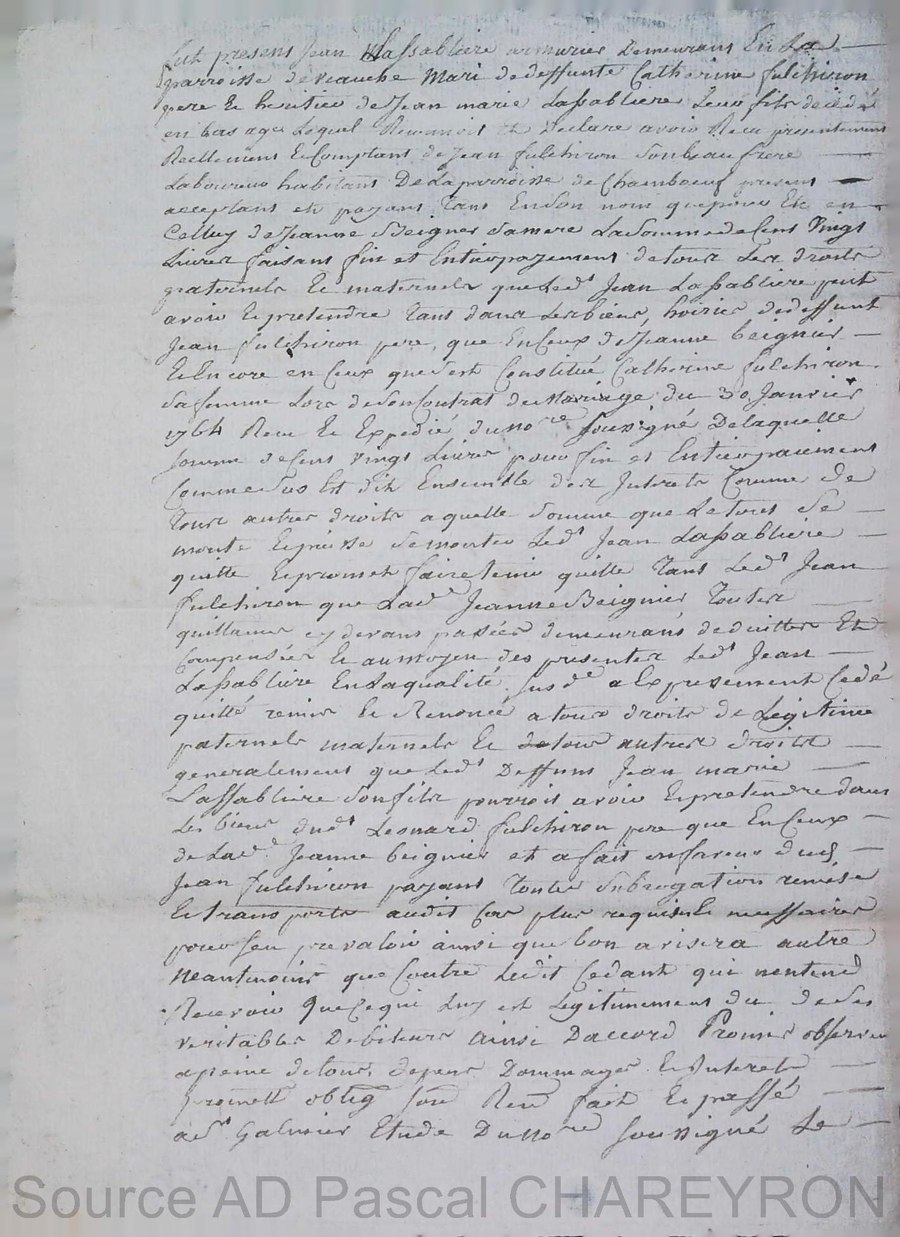 fut present Jean Lassabliere armurier Demeurant En La
parroisse de veauche Mari de deffunte Catherine fulchiron
pere Et heritier de Jean marie Lassabliere Leur fils decedé
en bas age Lequel Reconnoit Et Declare avoir Receu presentement
Reellement Et Comptant de Jean fulchiron son beau frere
Laboureur habitant De La parroisse de Chambœuf present
acceptant et payant tant En son nom que pour Et en
Celluy de Jeanne Beignier sa mere La somme de Cent Vingt
Livres faisant fin et Entier payement de tous Les droits
paternels Et maternels que Led.t Jean Lassabliere peut
avoir Et pretendre tant dans Les biens, hoirie de deffunt
Jean fulchiron pere, que En Ceux de Jeanne beignier
Et Encore en Ceux que s'est Constitué Catherine fulchiron
sa femme Lors de son Contrat de Mariage du 30 Janvier
1764 Receu Et Expedié du no.re sousigné De laquelle
somme de Cent vingt Livres pour fin et Entier paiement
Comme sus Est dit Ensemble des Interets Comme de
tous autres droits a quelle somme que Le tout se
monte Et puisse se monter Led.t Jean Lassabliere
quitte Et promet faire tenir quitte tant Led.t Jean
fulchiron que Lad.e Jeanne Beignier toutes
quittances cy devant passées demeurant deduittes Et
Compensées Et au moyen des presentes Led.t Jean
Lassabliere En La qualité sus d.e a Expressement Cedé
quitté remis Et Renoncé a tous droits de Legitime
paternels maternels Et de tous autres droits
generalement que Led.t Deffunt Jean marie
Lassabliere son fils pourroit avoir Et pretendre dans
Les biens dud.t Leonard fulchiron pere que En Ceux
de Lad.e Jeanne beignier et a fait en faveur dud.
Jean fulchiron payant toute subrogation remise
Et transports audit Cas plus requis Et necessaires
pour s'en prevaloir ainsi que bon avisera autre
Neantmoins que Contre Ledit Cedant qui n'entend
Recevoir que Ce qui Luy est Legitimement du de ses
veritables Debiteurs ainsi D'accord Promis observer
a peine de tous depens Dommages Et Interets
promett oblig soum Ren fait Et passé
a St Galmier Etude Du no.re soussigné Le
Source AD Pascal CHAREYRON